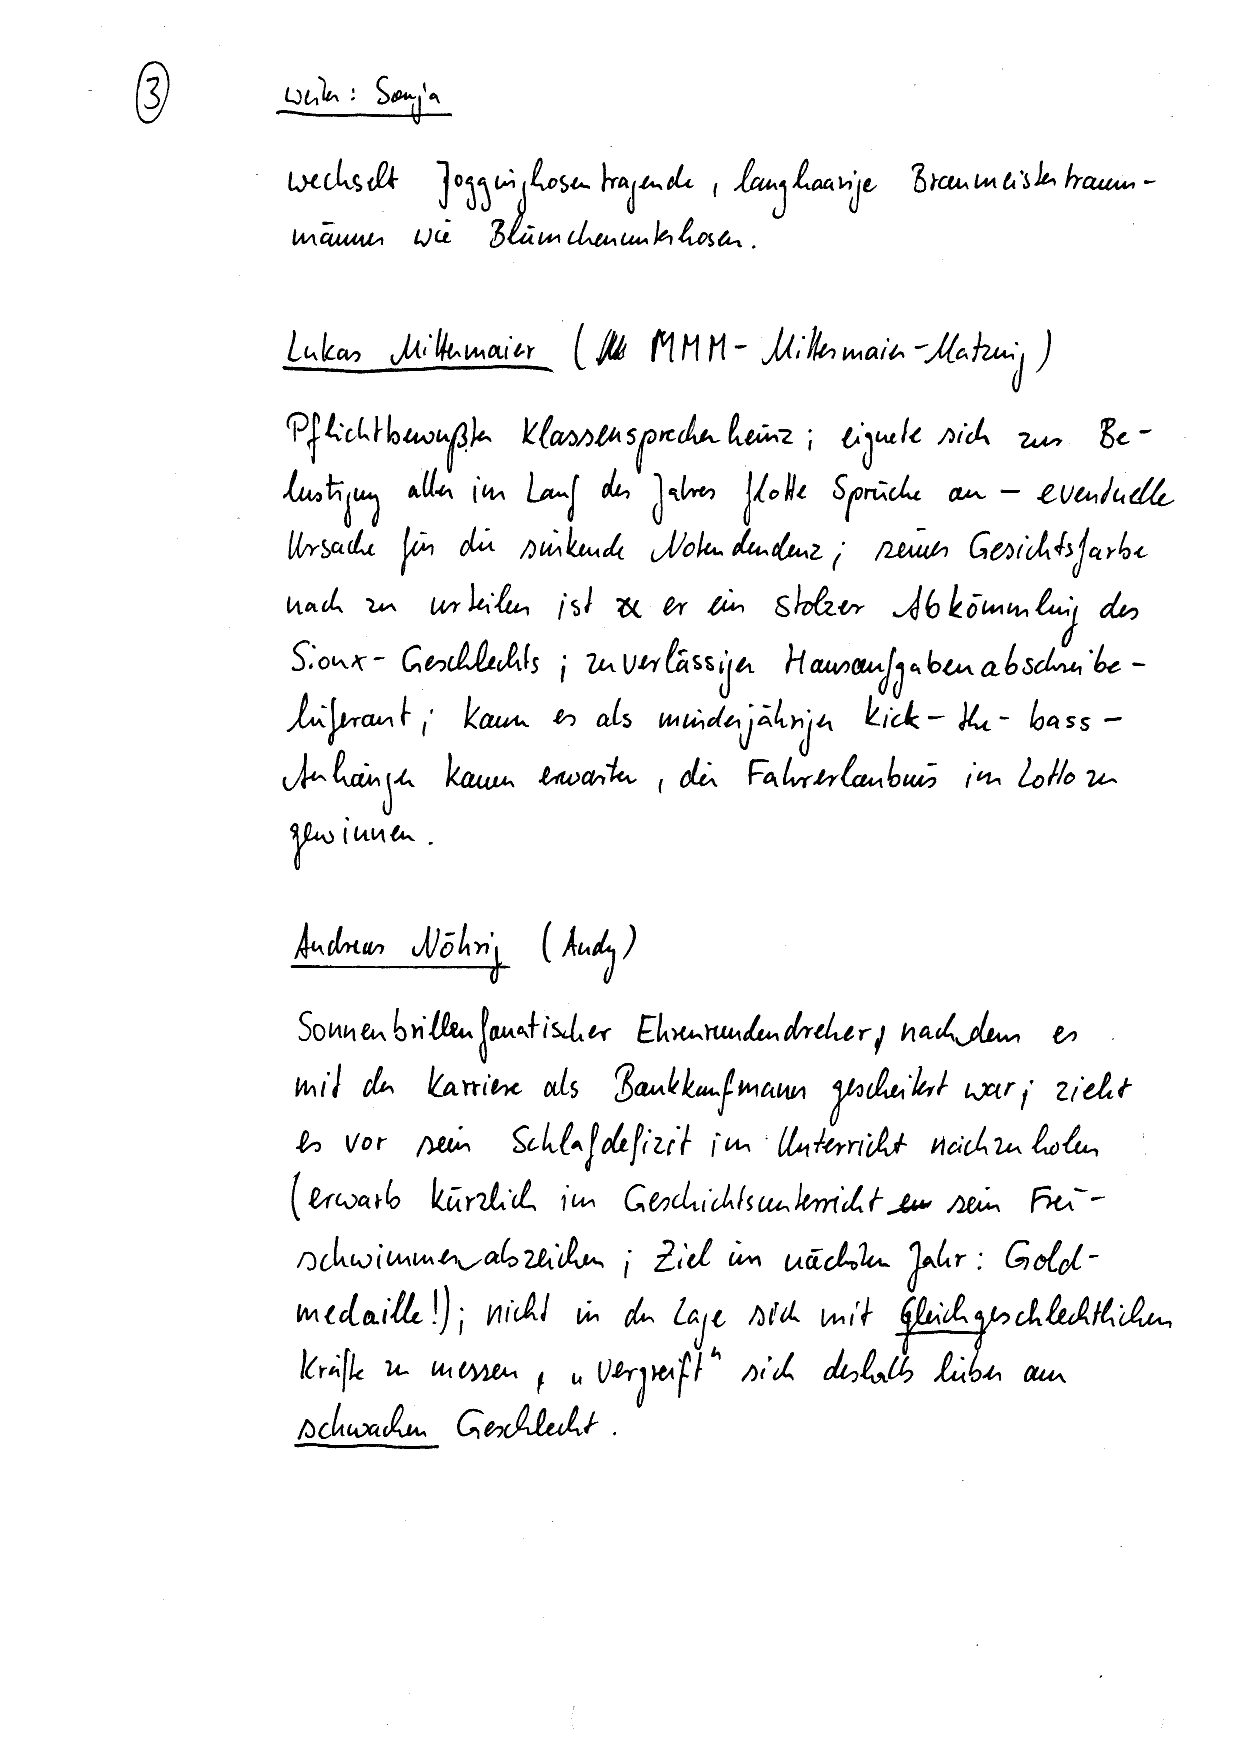 3
weiter: Sonja
wechselt Jogginghosentragende, langhaarige Braumeistertraum-
männer wie Blümchenunterhosen.
Lukas Mittermaier (MMM - Mittermaier-Matznig)
Pflichtbewußter Klassensprecherheinz; eignete sich zur Be-
lustigung aller im Lauf des Jahres flotte Sprüche an - eventuelle
Ursache für die sinkende Notendendenz; seiner Gesichtsfarbe
nach zu urteilen ist er ein stolzer Abkömmling des
Sioux-Geschlechts; zuverlässiger Hausaufgabenabschreibe-
lieferant; kann es als minderjähriger kick-the-bass-
Anhänger kaum erwarten, die Fahrerlaubnis im Lotto zu
gewinnen.
Andreas Nöhrig (Andy)
Sonnenbrillenfanatischer Ehrenrundendreher, nachdem er
mit der Karriere als Bankkaufmann gescheitert war; zieht
es vor sein Schlafdefizit im Unterricht nachzuholen
(erwarb kürzlich im Geschichtsunterricht sein Frei-
schwimmerabzeichen; Ziel im nächsten Jahr: Gold-
medaille!); nicht in der Lage sich mit gleichgeschlechtlichen
Kräfte zu messen, "vergreift" sich deshalb lieber am
schwachen Geschlecht.